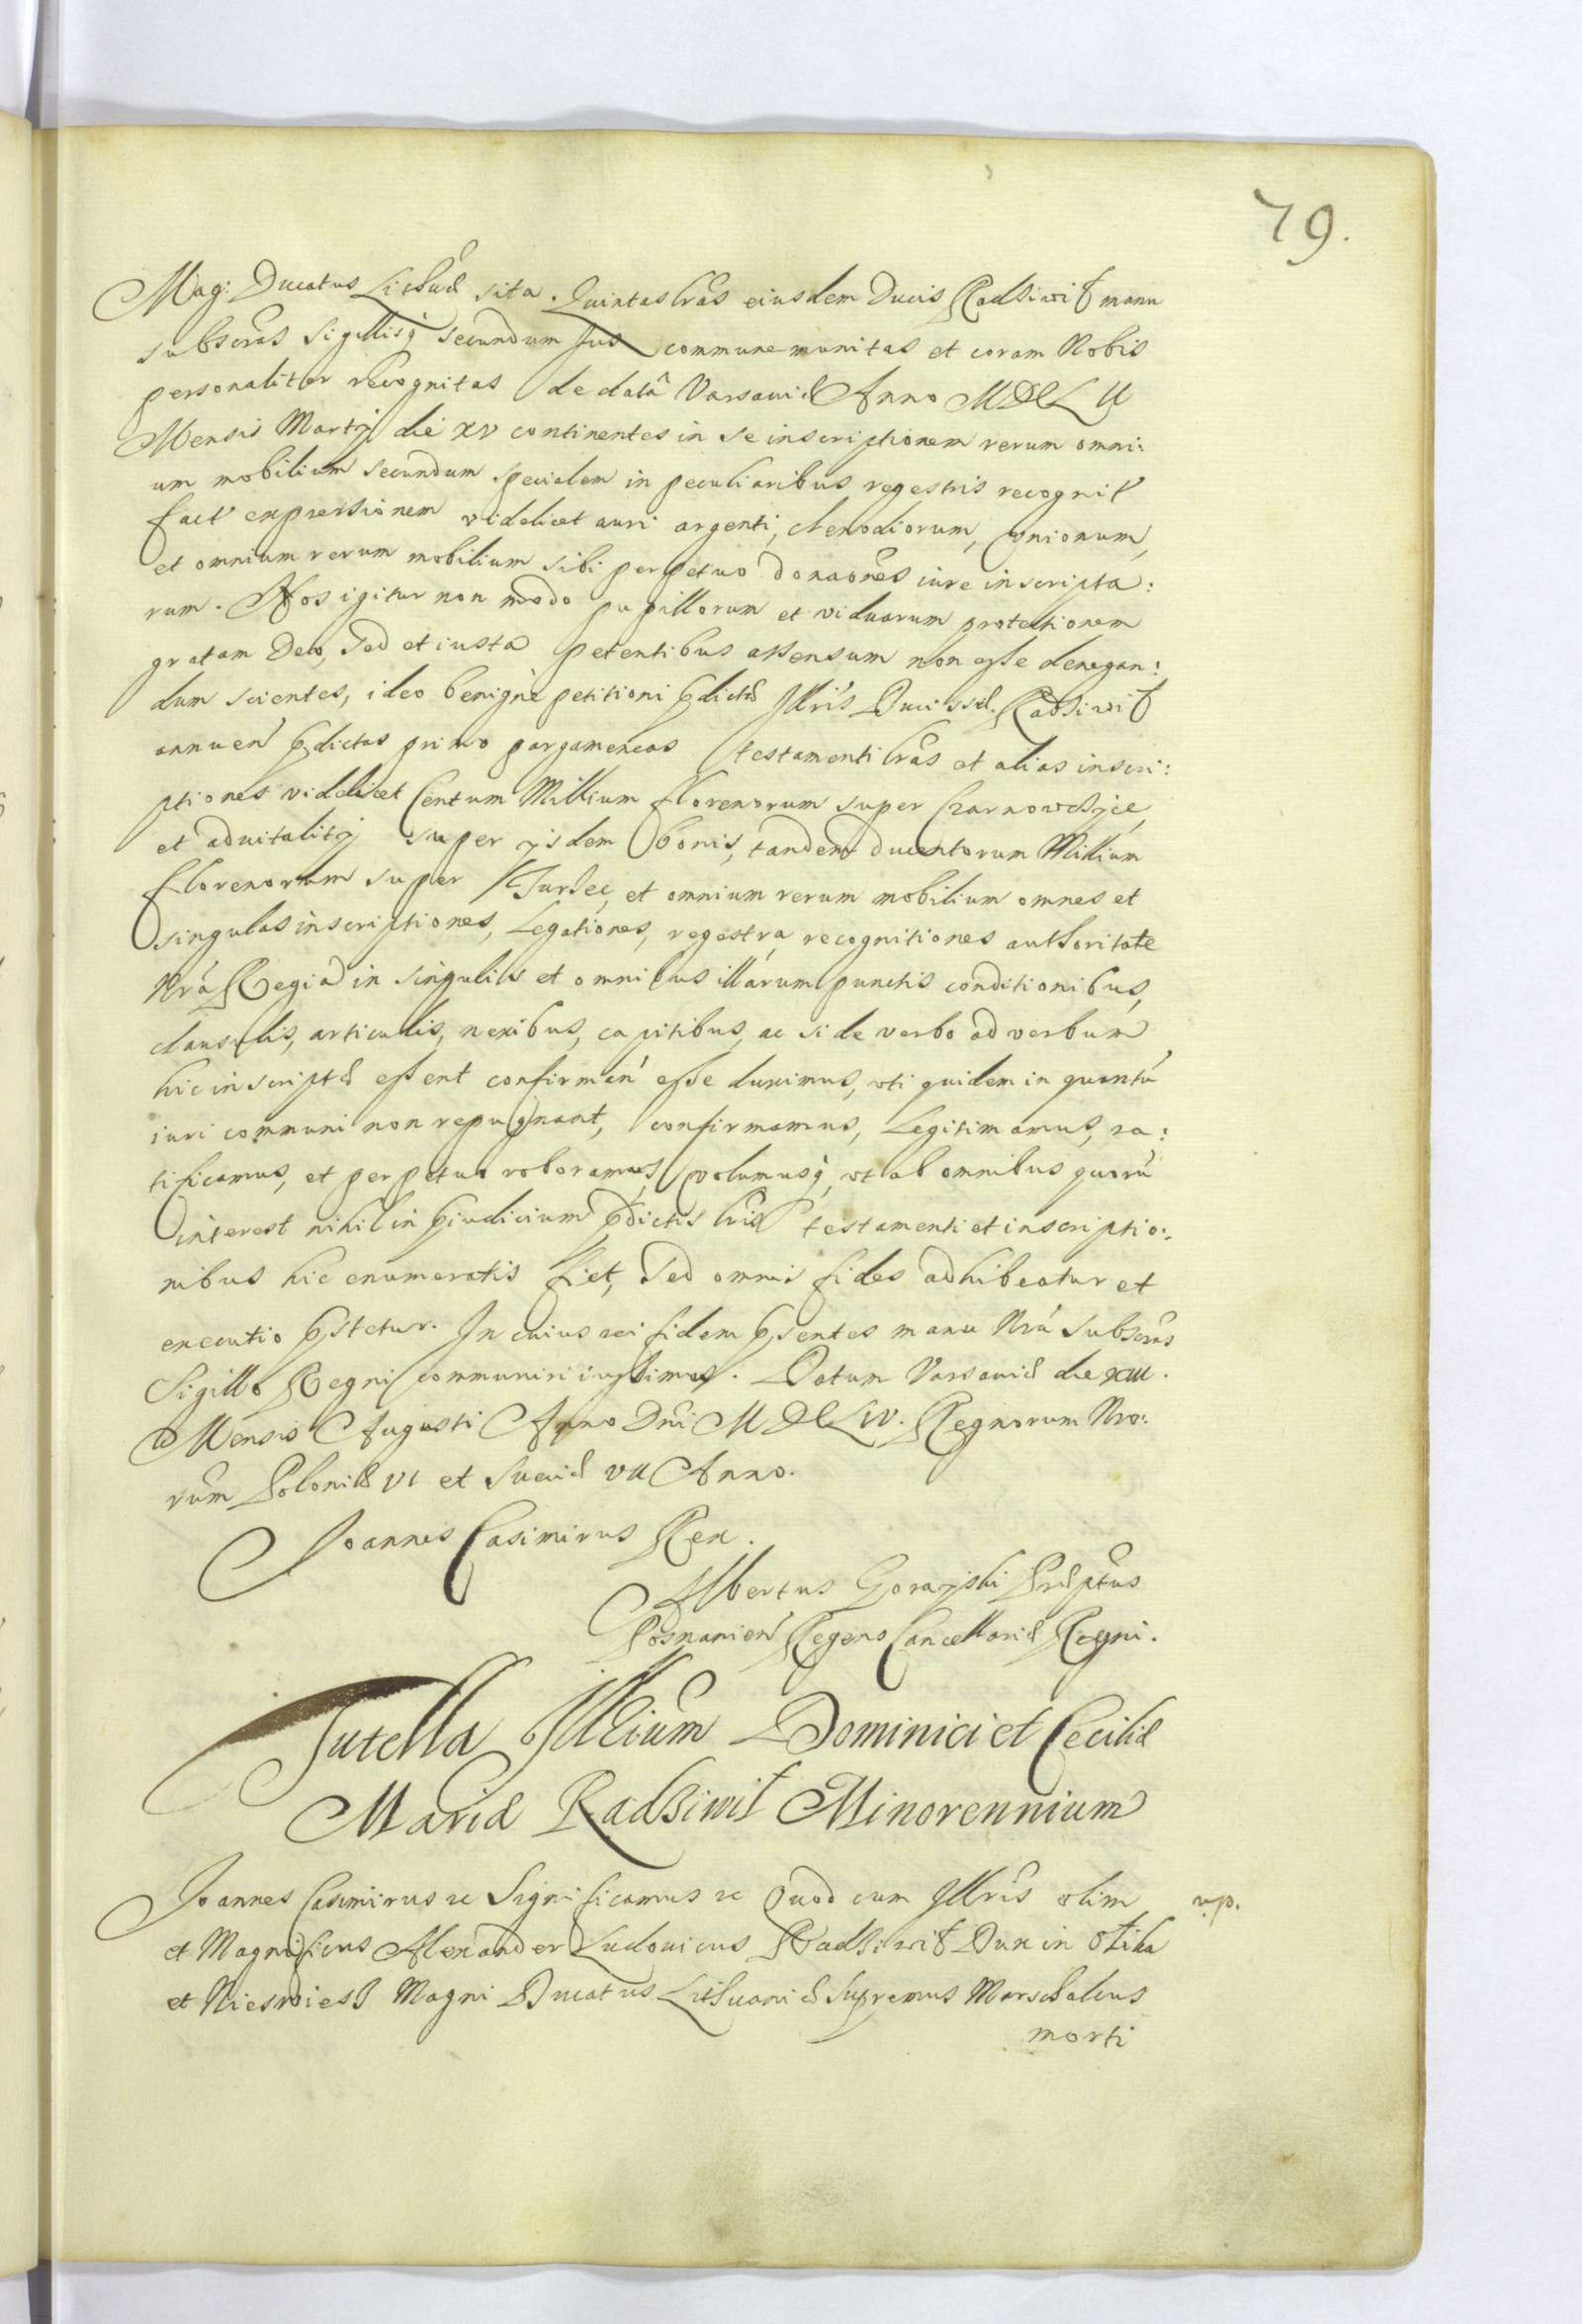 79.
Mag: Ducatus Lithuae sita. Quintas lras eiusdem Ducis Radziwił manu
subscras sigillisq secundum Jus commune munitas et coram Nobis
personaliter recognitas de data Varsaviae Anno MDCLII
Mensis Martij die XV continentes in se inscriptionem rerum omni:
um mobilium secundum specialem in peculiaribus regestris recognit
fact expressionem videlicet auri argenti, clenodiorum, unionum,
et omnium rerum mobilium sibi perpetuo donaones iure inscripta:
rum. Nos igitur non modo pupillorum et viduarum protectionem
gratam Deo, sed et iusta petentibus assensum non esse denegan:
dum scientes, ideo benigne petitioni pdictae Illris Ducissae Radziwił
annuen pdictas primo pargameneas testamenti lras et alias inscri:
ptiones videlicet Centum Millium florenorum super Czarnowchyce,
et advitalitij super ijsdem bonis, tandem ducentorum Millium
florenorum super Turzec, et omnium rerum mobilium omnes et
singulas inscriptiones, Legationes, regestra recognitiones authoritate
Nra Regia in singulis et omnibus illarum punctis conditionibus,
clausulis, articulis, nexibus, capitibus, ac si de verbo ad verbum
hic inscriptae essent confirman esse duximus, uti quidem in quantu
iuri communi non repugnant, confirmamus, Legitimamus, ra:
tificamus, et perpetuo roboramus, volumusq, ut ab omnibus quoru
interest nihil in piudicium pdictis lris testamenti et inscriptio:
nibus hic enumeratis fiet, sed omnis fides adhibeatur et
executio pstetur. In cuius rei fidem psentes manu Nra subscras
Sigillo Regni communiri iussimus. Datum Varsaviae die XIII.
Mensis Augusti Anno Dni MDCLIV. Regnorum Nro:
rum Poloniae VI et Sueciae VII Anno.
Joannes Casimirus Rex.
Albertus Gorayski Praeptus
Posnanien Regens Cancellariae Regni.
Tutella Illrium Dominici et Ceciliae
Mariae Radziwił Minorennium
Joannes Casimirus etc Significamus etc Quod cum Illris olim
v.p.
et Magnificus Alexander Ludovicus Radziwił Dux in Ołika
et Nieswiesz Magni Ducatus Lithuaniae Supremus Marschalcus
morti